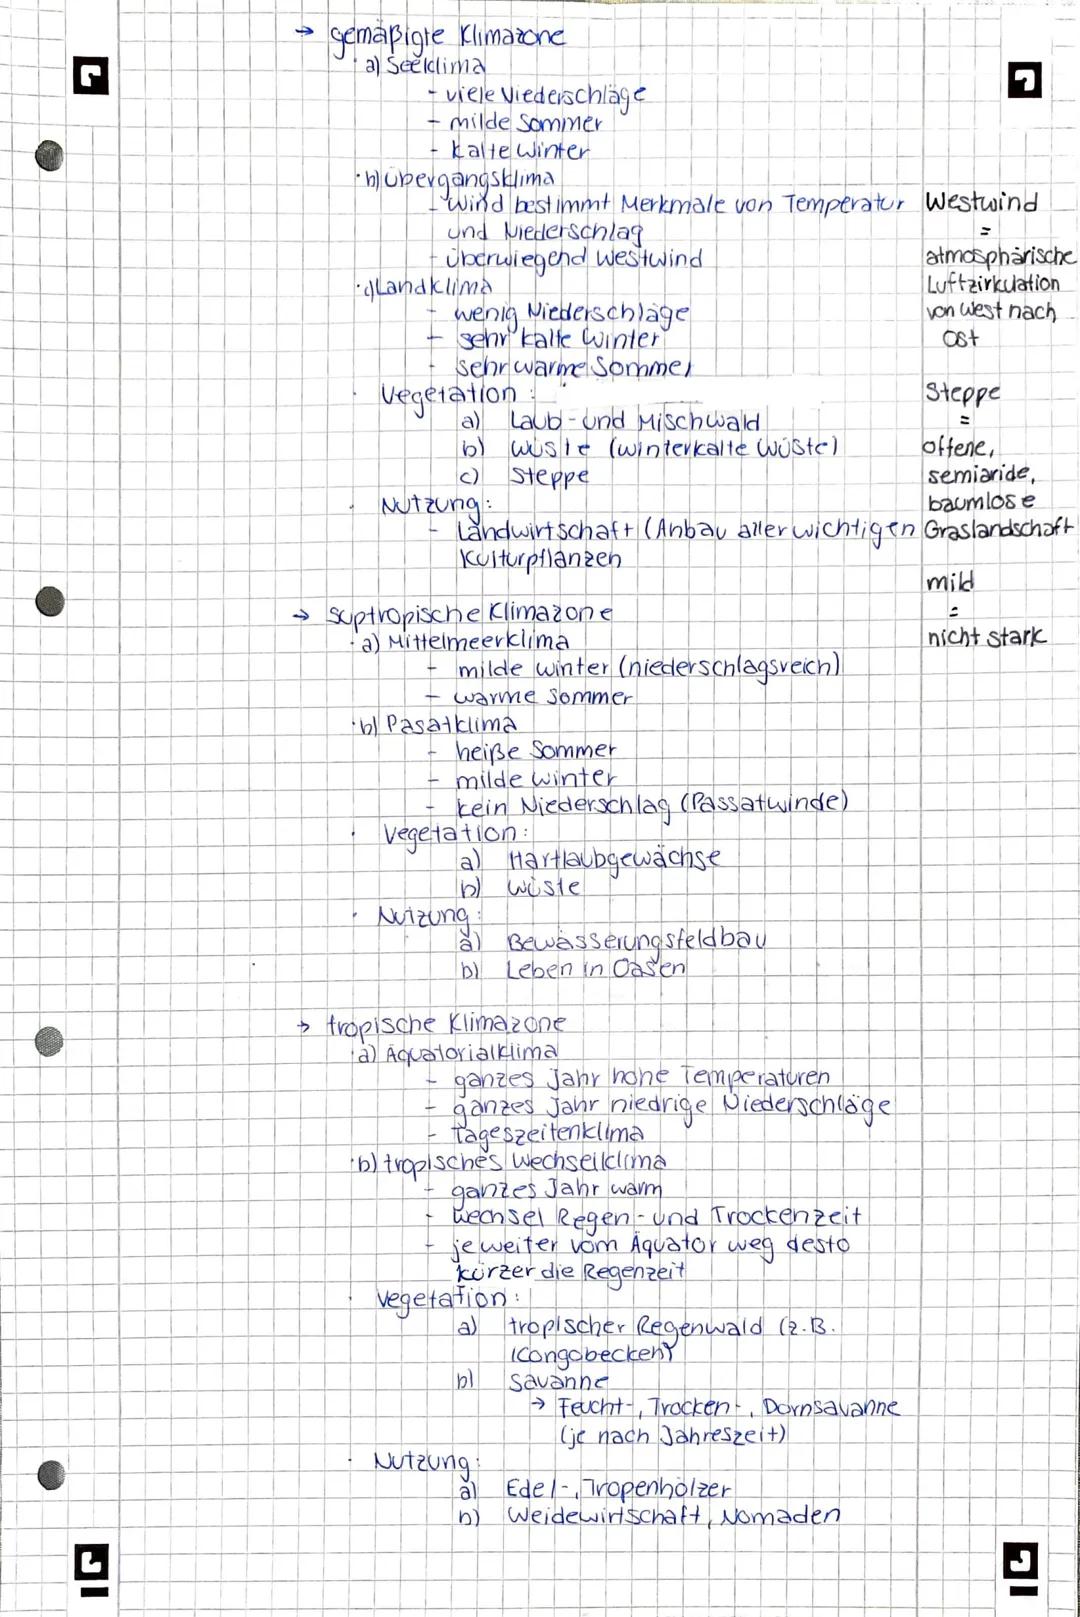 → gemäßigte Klimazone
· a) Seeklima
- viele Niederschläge
- milde Sommer
- kalte Winter
· b) Übergangsklima
- Wind bestimmt Merkmale von Temperatur
und Niederschlag
- überwiegend Westwind
· c) Landklima
- wenig Niederschläge
- sehr kalte Winter
- sehr warme Sommer
· Vegetation:
a) Laub- und Mischwald
b) Wüste (winterkalte Wüste)
c) Steppe
· Nutzung:
- Landwirtschaft (Anbau aller wichtigen
Kulturpflanzen
Westwind
=
atmosphärische
Luftzirkulation
von West nach
Ost
Steppe
=
offene,
semiaride,
baumlose
Graslandschaft
mild
=
nicht stark
→ suptropische Klimazone
· a) Mittelmeerklima
- milde Winter (niederschlagsreich)
- warme Sommer
· b) Pasatklima
- heiße Sommer
- milde Winter
- kein Niederschlag (Passatwinde)
· Vegetation:
a) Hartlaubgewächse
b) Wüste
· Nutzung:
a) Bewässerungsfeldbau
b) Leben in Oasen
→ tropische Klimazone
· a) Äquatorialklima
- ganzes Jahr hohe Temperaturen
- ganzes Jahr niedrige Niederschläge
- Tageszeitenklima
· b) tropisches Wechselklima
- ganzes Jahr warm
- Wechsel Regen- und Trockenzeit
- je weiter vom Äquator weg desto
kürzer die Regenzeit
· Vegetation:
a) tropischer Regenwald (z.B.
Kongobecken)
b) Savanne
→ Feucht-, Trocken-, Dornsavanne
(je nach Jahreszeit)
· Nutzung:
a) Edel-, Tropenhölzer
b) Weidewirtschaft, Nomaden